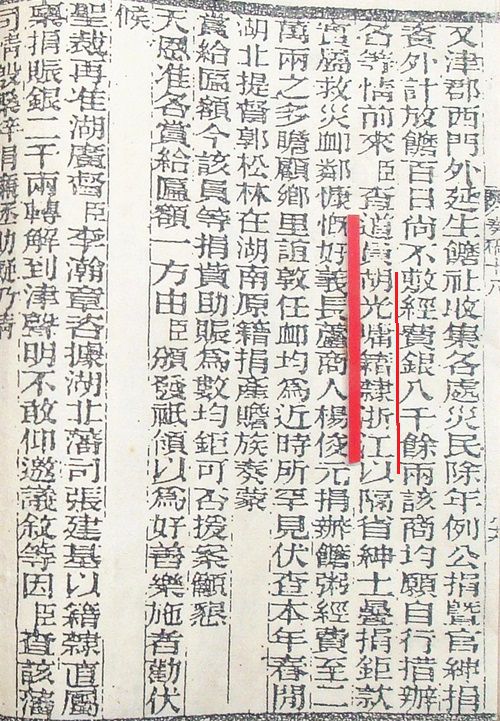 又津郡西門外延生饘社收集各處災民除年例公捐曁官紳捐
資外計放饘百日尚不敷經費銀八千餘兩該商均願自行措辦
各等情前來臣查道員胡光墉籍隸浙江以隔省紳士疊捐鉅款
實屬救災卹鄰慷慨好義長蘆商人楊俊元捐辦饘粥經費至二
萬兩之多贍顧鄉里誼敦任卹均為近時所罕見伏查本年春間
湖北提督郭松林在湖南原籍捐產贍族奏蒙
賞給匾額今該員等捐貲助賑為數均鉅可否援案籲懇
天恩准各賞給匾額一方由臣頒發祇領以為好善樂施者勸伏
候
聖裁再准湖廣督臣李瀚章咨據湖北藩司張建基以籍隸直屬
稟捐賑銀二千兩轉解到津聲明不敢仰邀議敘等因臣查該藩
司情殷桑梓捐廉